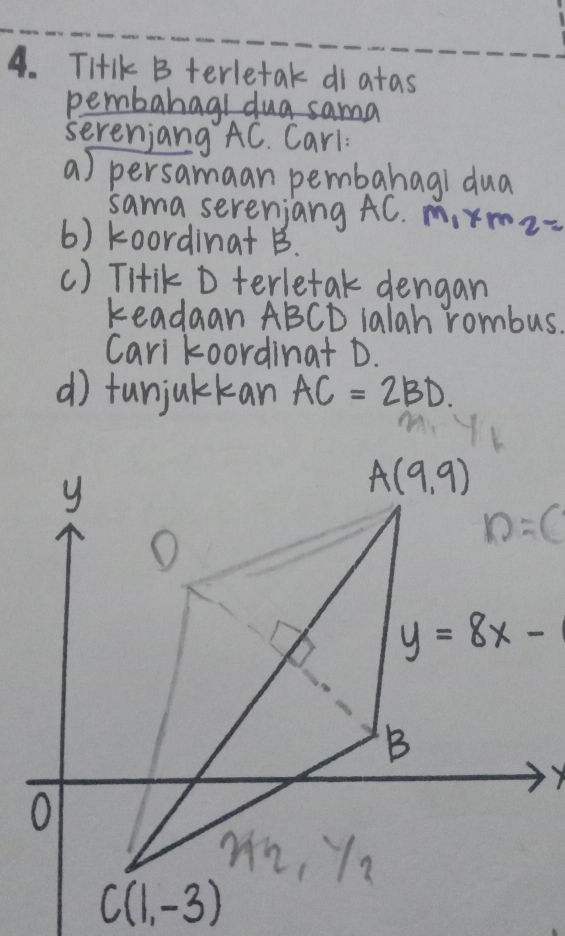 4. Titik B terletak di atas
pembahagi dua sama
serenjang AC. Cari:
a) persamaan pembahagi dua
sama serenjang AC. m₁ x m₂ =
b) koordinat B.
c) Titik D terletak dengan
keadaan ABCD ialah rombus.
Cari koordinat D.
d) tunjukkan AC = 2BD.
x₁, y₁
A(9,9)
y
D
D=(
y = 8x -
B
x
O
x₂, y₂
C(1,-3)